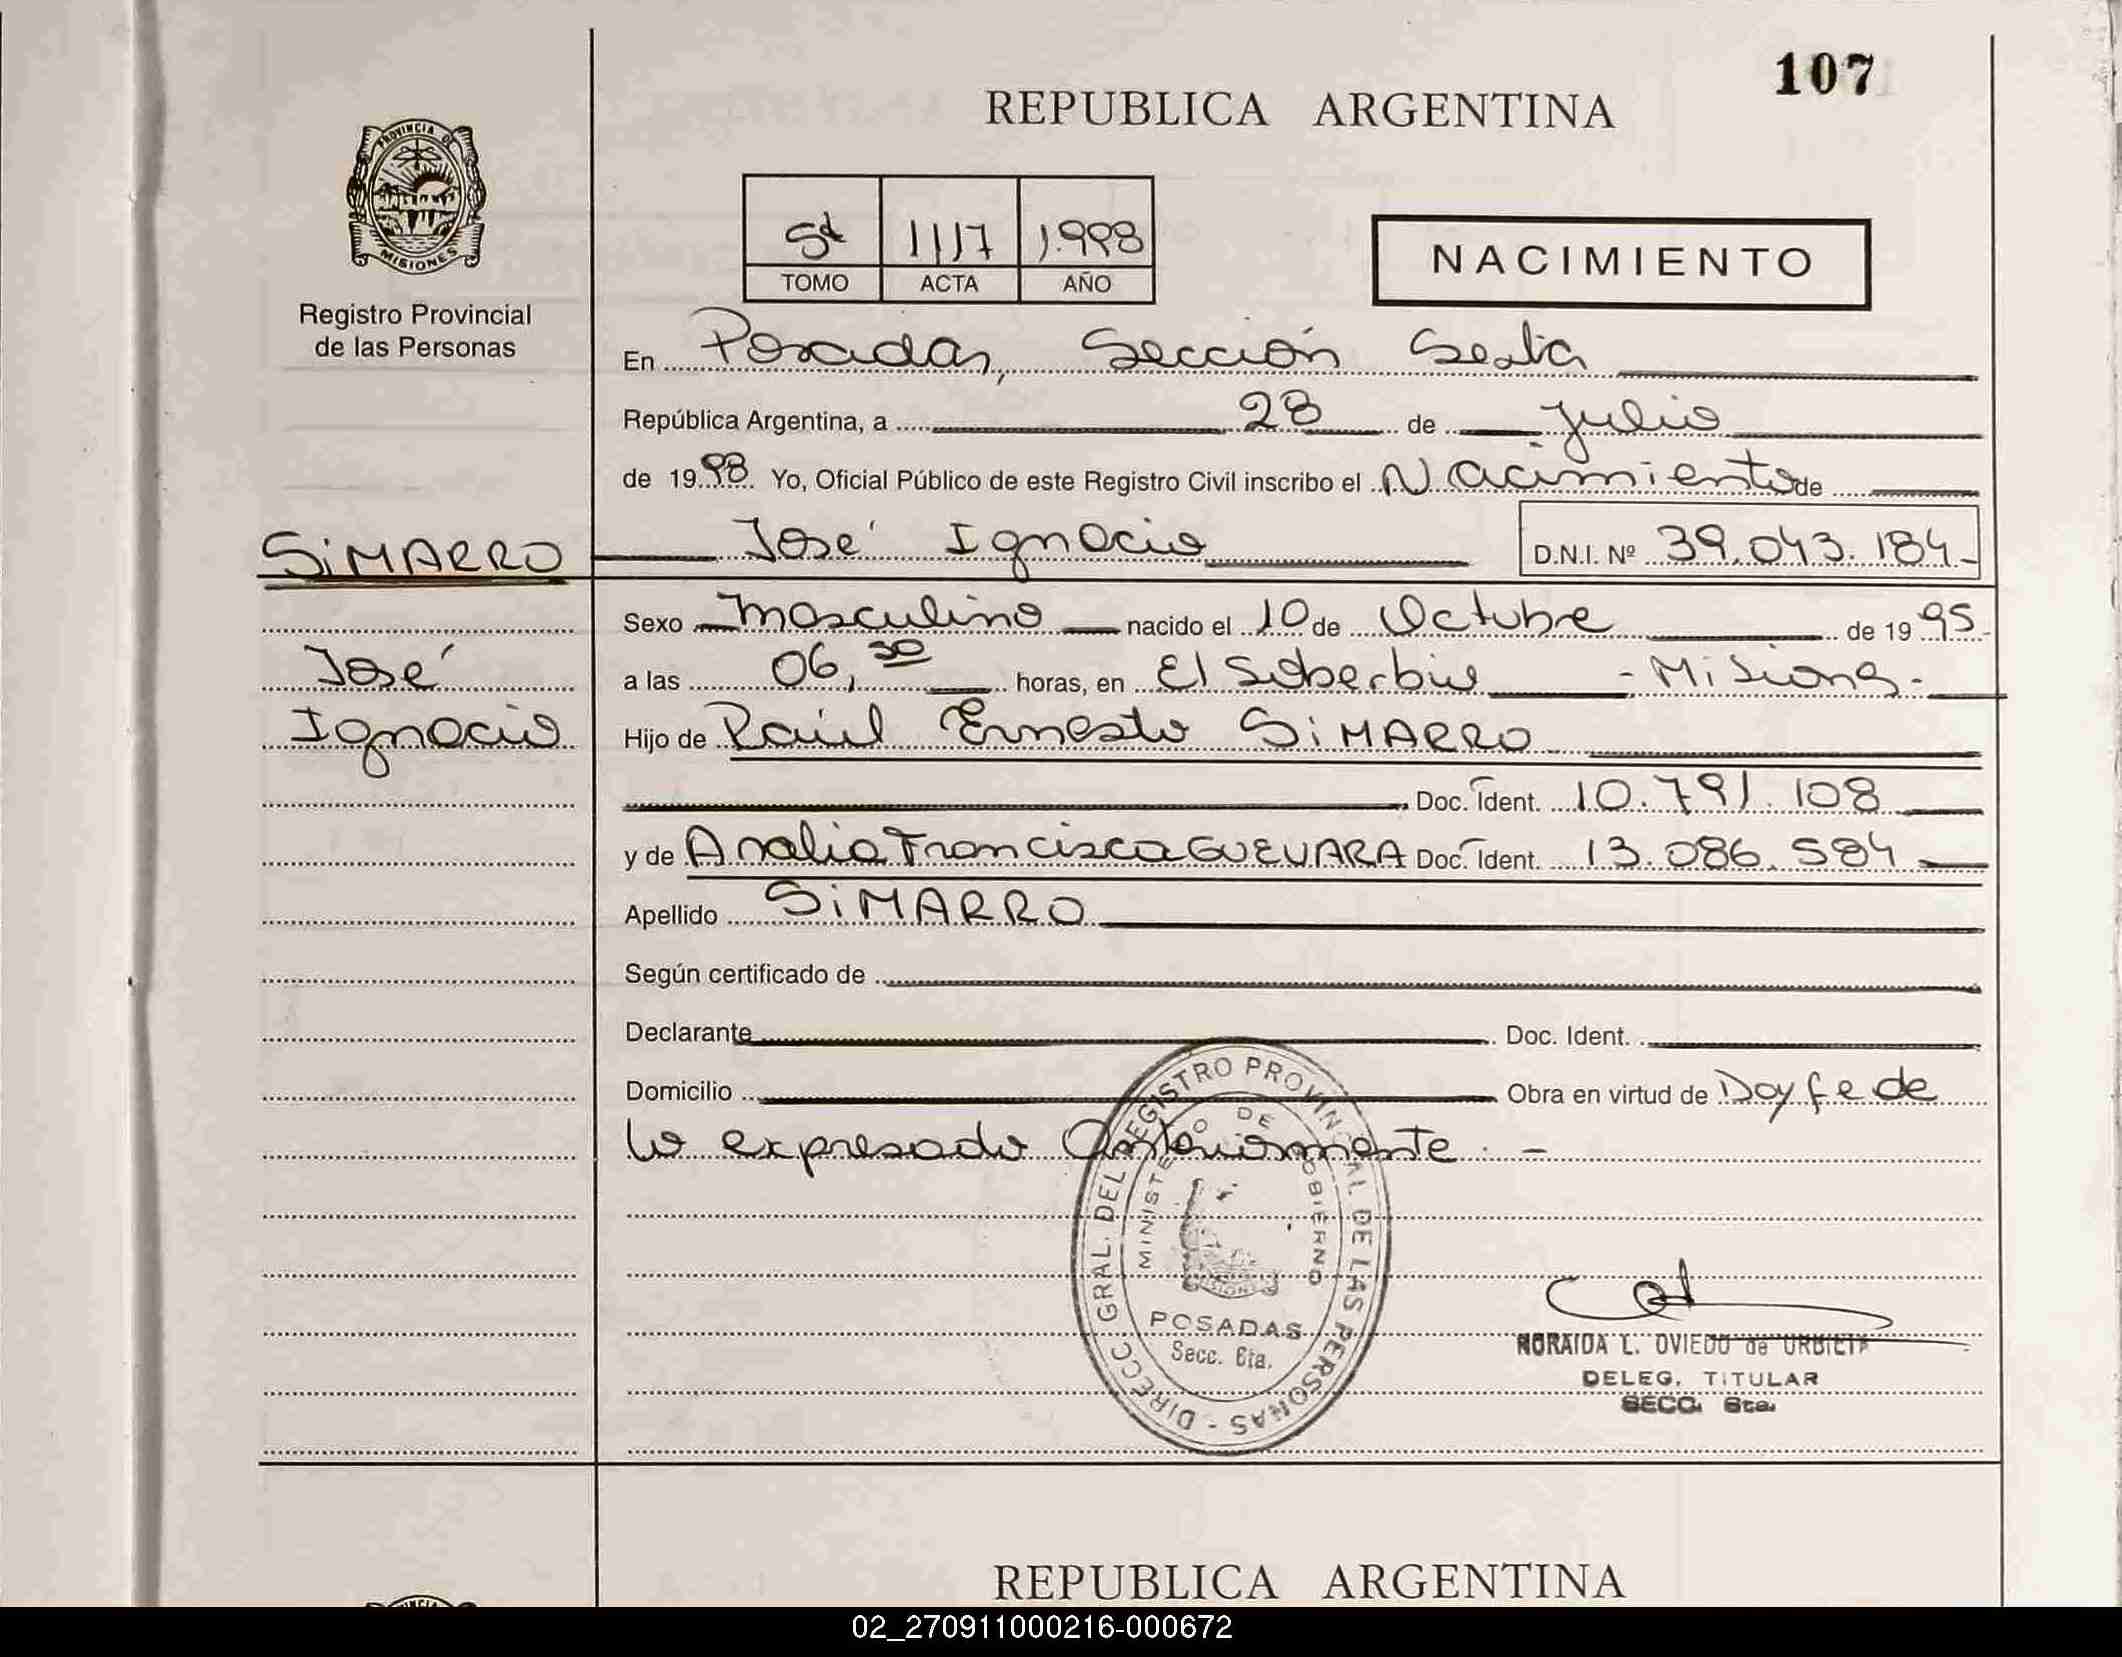 107
REPUBLICA ARGENTINA
PROVINCIA DE
MISIONES
Registro Provincial
de las Personas
5t 1117 1.998
TOMO ACTA AÑO
NACIMIENTO
En Posadas, Sección Sexta
República Argentina, a 28 de julio
de 1998. Yo, Oficial Público de este Registro Civil inscribo el Nacimiento de
SiMARRO José Ignacio D.N.I. Nº 39.043.184.-
Sexo Masculino nacido el 10 de Octubre de 1995.
José a las 06,30 horas, en El Soberbio - Misiones -
Ignacio Hijo de Raúl Ernesto SiMARRO
Doc. Ident. 10.791.108
y de Analia Francisca GUEVARA Doc. Ident. 13.086.584
Apellido SiMARRO
Según certificado de
Declarante Doc. Ident.
Domicilio Obra en virtud de Doy fe de
lo expresado Anteriormente. -
DIRECC GRAL. DEL REGISTRO PROVINCIAL DE LAS PERSONAS -
MINISTERIO DE GOBIERNO
POSADAS
Secc. 6ta.
NORAIDA L. OVIEDO de
DELEG. TITULAR
SECC. 6ta.
REPUBLICA ARGENTINA
02_270911000216-000672